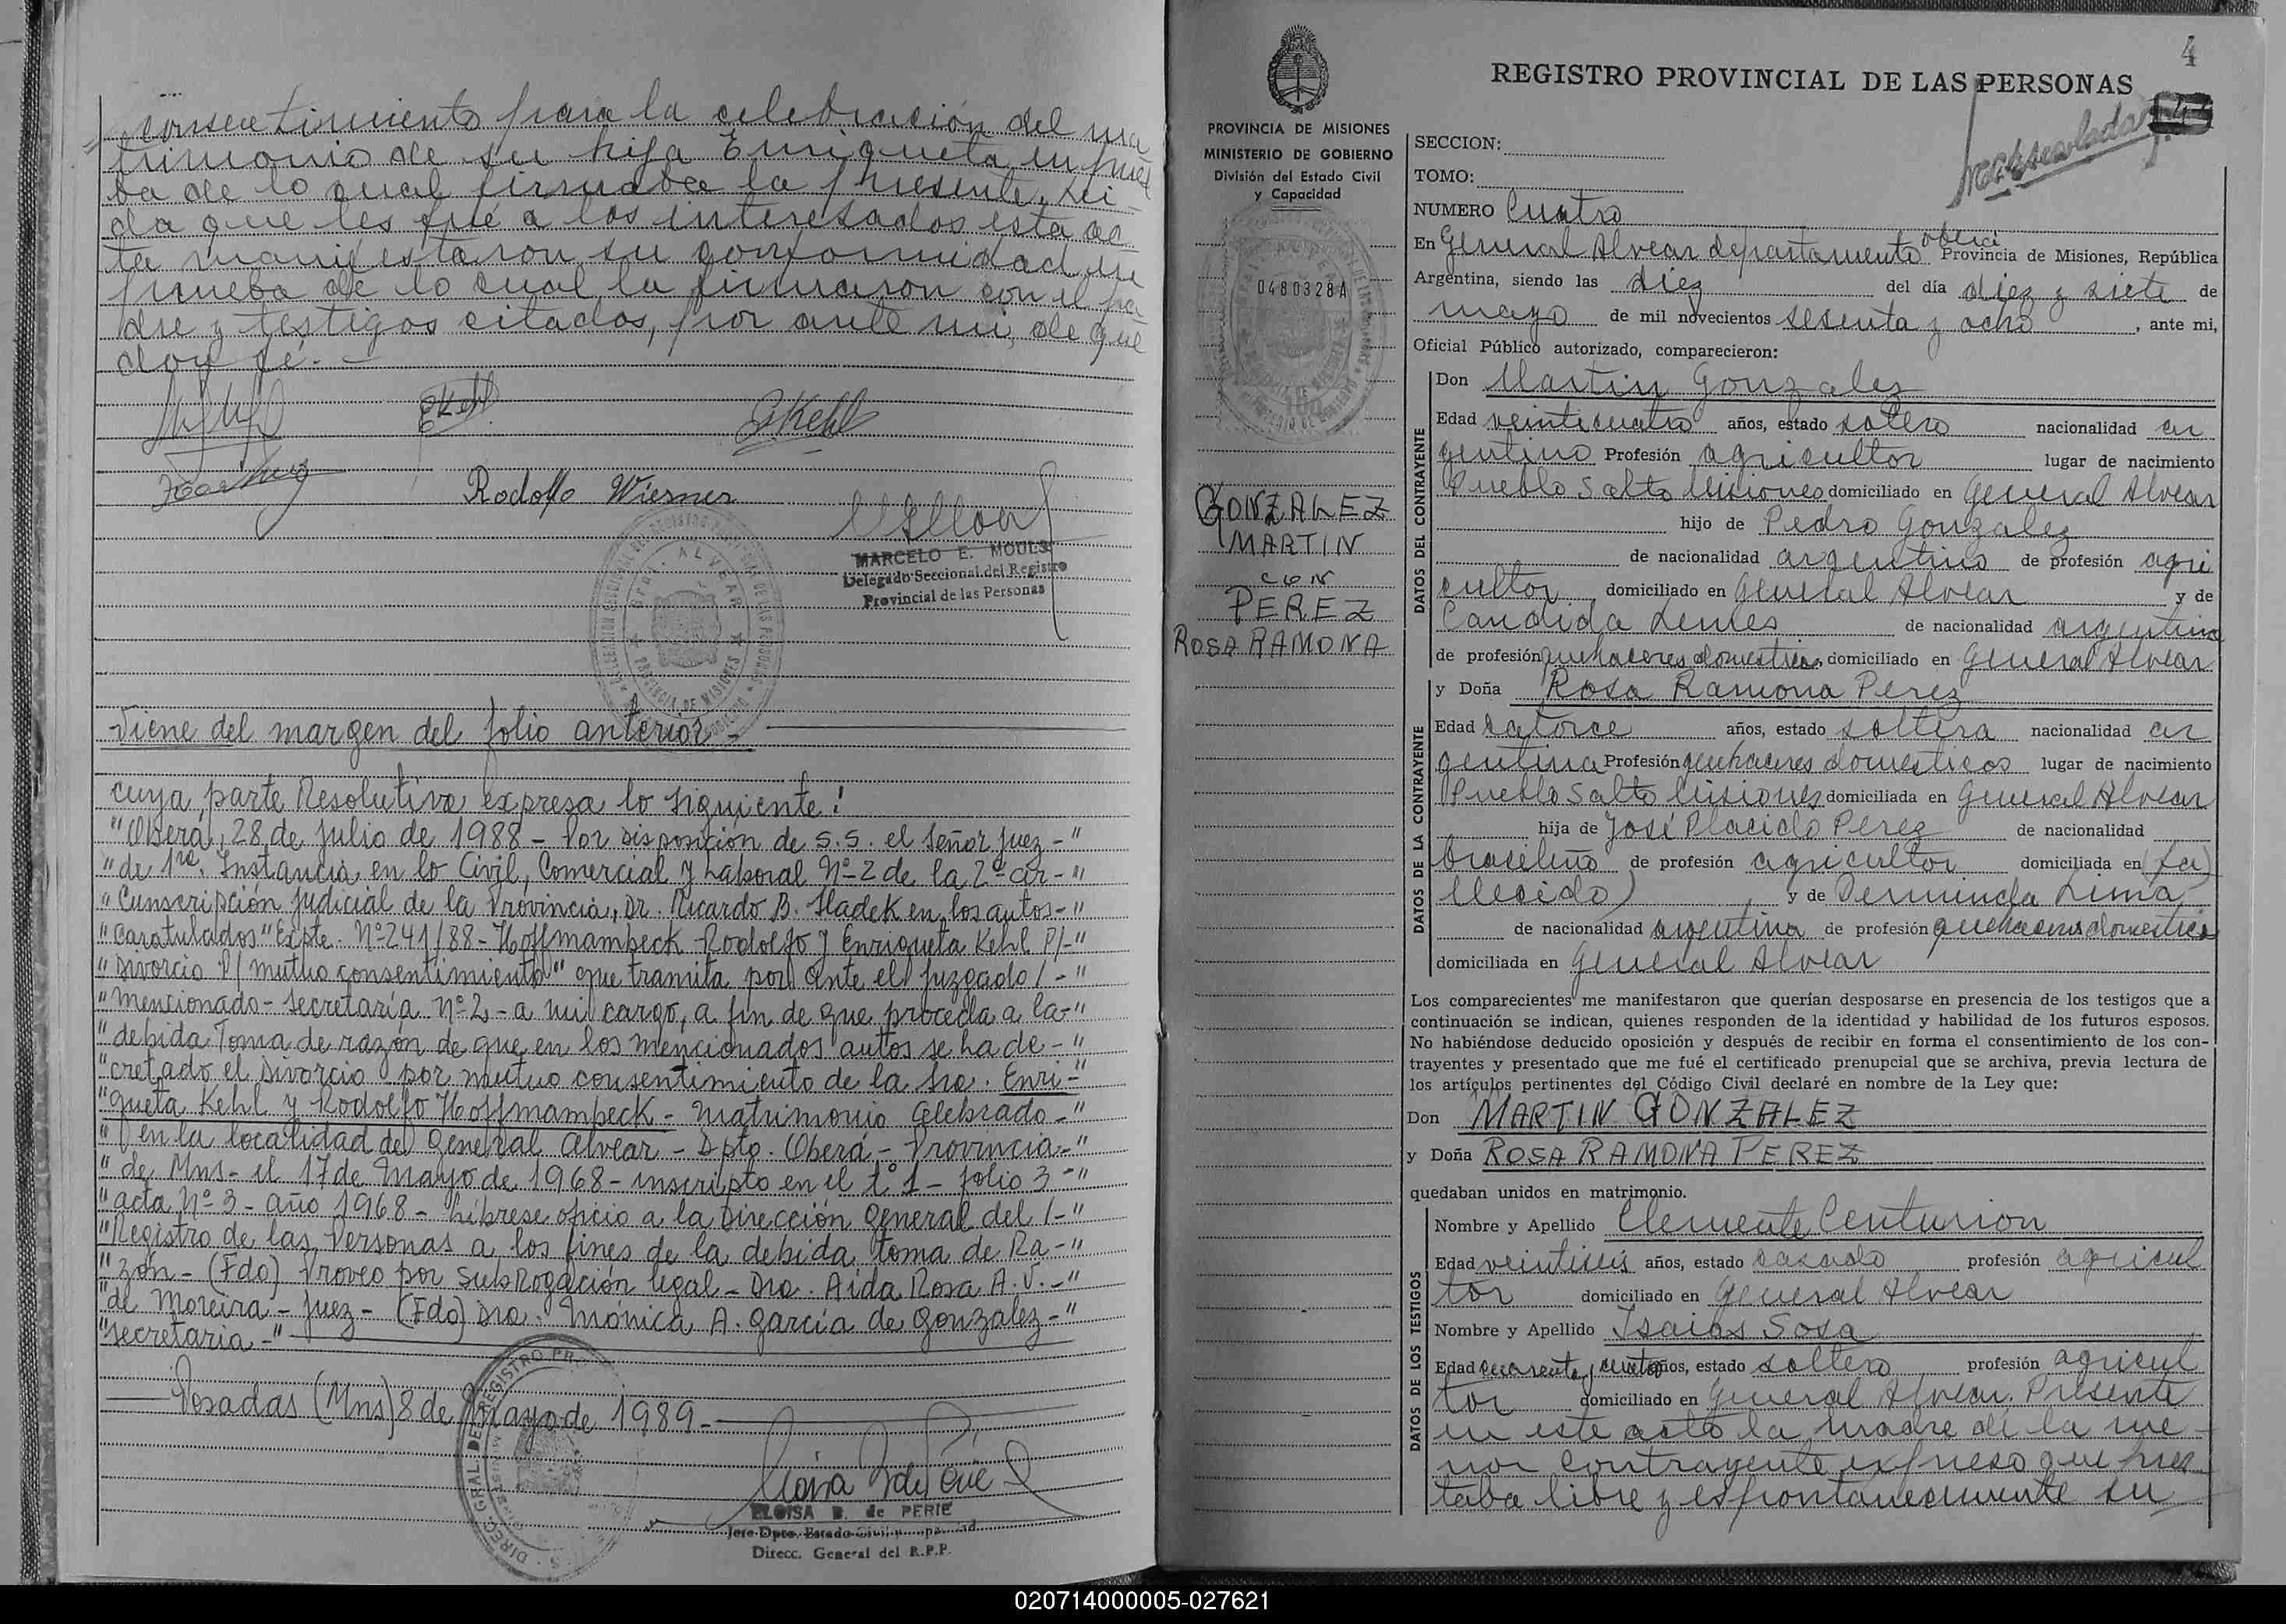 consentimiento para la celebración del ma
trimonio de su hija Enriqueta en prue
ba de lo cual firmaba la presente. Lei
da que les fué a los interesados esta ac
ta manifestaron su conformidad en
prueba de lo cual la firmaron con el pa
dre y testigos citados, por ante mi, de que
doy fé. -
EKehl
GKehl
Rodolfo Wiesner
MARCELO E. MOULS
Delegado Seccional del Registro
Provincial de las Personas
Viene del margen del folio anterior -
cuya parte Resolutiva expresa lo siguiente:
"Oberá, 28 de Julio de 1988 - Por disposición de S.S. el Señor Juez -"
"de 1ra. Instancia en lo Civil, Comercial y Laboral Nº 2 de la 2ª Cir -"
"Cunscripción Judicial de la Provincia, Dr. Ricardo B. Hladek en los autos -"
"Caratulados "Expte. Nº 241/88 - Hoffmambeck Rodolfo y Enriqueta Kehl P/-"
"Divorcio P/ mutuo consentimiento" que tramita por ante el Juzgado / -"
"Mencionado - Secretaría Nº 2 - a mi cargo, a fin de que proceda a la -"
"debida Toma de razón de que en los mencionados autos se ha de -"
"cretado el Divorcio por mutuo consentimiento de la Sra. Enri -"
"queta Kehl y Rodolfo Hoffmambeck - Matrimonio celebrado -"
"en la localidad de General Alvear - Dpto. Oberá - Provincia -"
"de Mns - el 17 de Mayo de 1968 - inscripto en el tº 1 - folio 3 -"
"acta Nº 3 - año 1968 - Líbrese oficio a la Dirección General del / -"
"Registro de las Personas a los fines de la debida toma de Ra -"
"zón - (Fdo) Proveo por subRogación legal - Dra. Aída Rosa A. V. -"
"de Moreira - Juez - (Fdo) Dra. Mónica A. García de Gonzalez -"
"secretaria -"
Posadas (Mns) 8 de Mayo de 1989 -
ELOISA B. de PERIE
Jefe Dpto. Estado Civil y Capacidad
Direcc. General del R.P.P.
4
REGISTRO PROVINCIAL DE LAS PERSONAS
PROVINCIA DE MISIONES
MINISTERIO DE GOBIERNO
División del Estado Civil
y Capacidad
0480328A
GONZALEZ
MARTIN
CON
PEREZ
ROSA RAMONA
SECCION:
TOMO:
NUMERO Cuatro
En General Alvear departamento Oberá Provincia de Misiones, República
Argentina, siendo las diez del día diez y siete de
mayo de mil novecientos sesenta y ocho, ante mi,
Oficial Público autorizado, comparecieron:
DATOS DEL CONTRAYENTE
Don Martin Gonzalez
Edad veinticuatro años, estado soltero nacionalidad ar
gentino Profesión agricultor lugar de nacimiento
Pueblo Salto Misiones domiciliado en General Alvear
hijo de Pedro Gonzalez
de nacionalidad argentino de profesión agri
cultor domiciliado en General Alvear y de
Candida Lemes de nacionalidad argentina
de profesión quehaceres domesticos domiciliado en General Alvear
DATOS DE LA CONTRAYENTE
y Doña Rosa Ramona Perez
Edad catorce años, estado soltera nacionalidad ar
gentina Profesión quehaceres domesticos lugar de nacimiento
Pueblo Salto Misiones domiciliada en General Alvear
hija de José Placido Perez de nacionalidad
brasileño de profesión agricultor domiciliada en (fa
llecido) y de Derminda Lima
de nacionalidad argentina de profesión quehaceres domesticos
domiciliada en General Alvear
Los comparecientes me manifestaron que querían desposarse en presencia de los testigos que a
continuación se indican, quienes responden de la identidad y habilidad de los futuros esposos.
No habiéndose deducido oposición y después de recibir en forma el consentimiento de los con-
trayentes y presentado que me fué el certificado prenupcial que se archiva, previa lectura de
los artículos pertinentes del Código Civil declaré en nombre de la Ley que:
Don MARTIN GONZALEZ
y Doña ROSA RAMONA PEREZ
quedaban unidos en matrimonio.
DATOS DE LOS TESTIGOS
Nombre y Apellido Clemente Centurion
Edad veintiseis años, estado casado profesión agricul
tor domiciliado en General Alvear
Nombre y Apellido Isaias Sosa
Edad cuarenta y cuatro años, estado soltero profesión agricul
tor domiciliado en General Alvear. Presente
en este acto la madre de la me
nor contrayente expreso que pres
taba libre y espontaneamente su
020714000005-027621